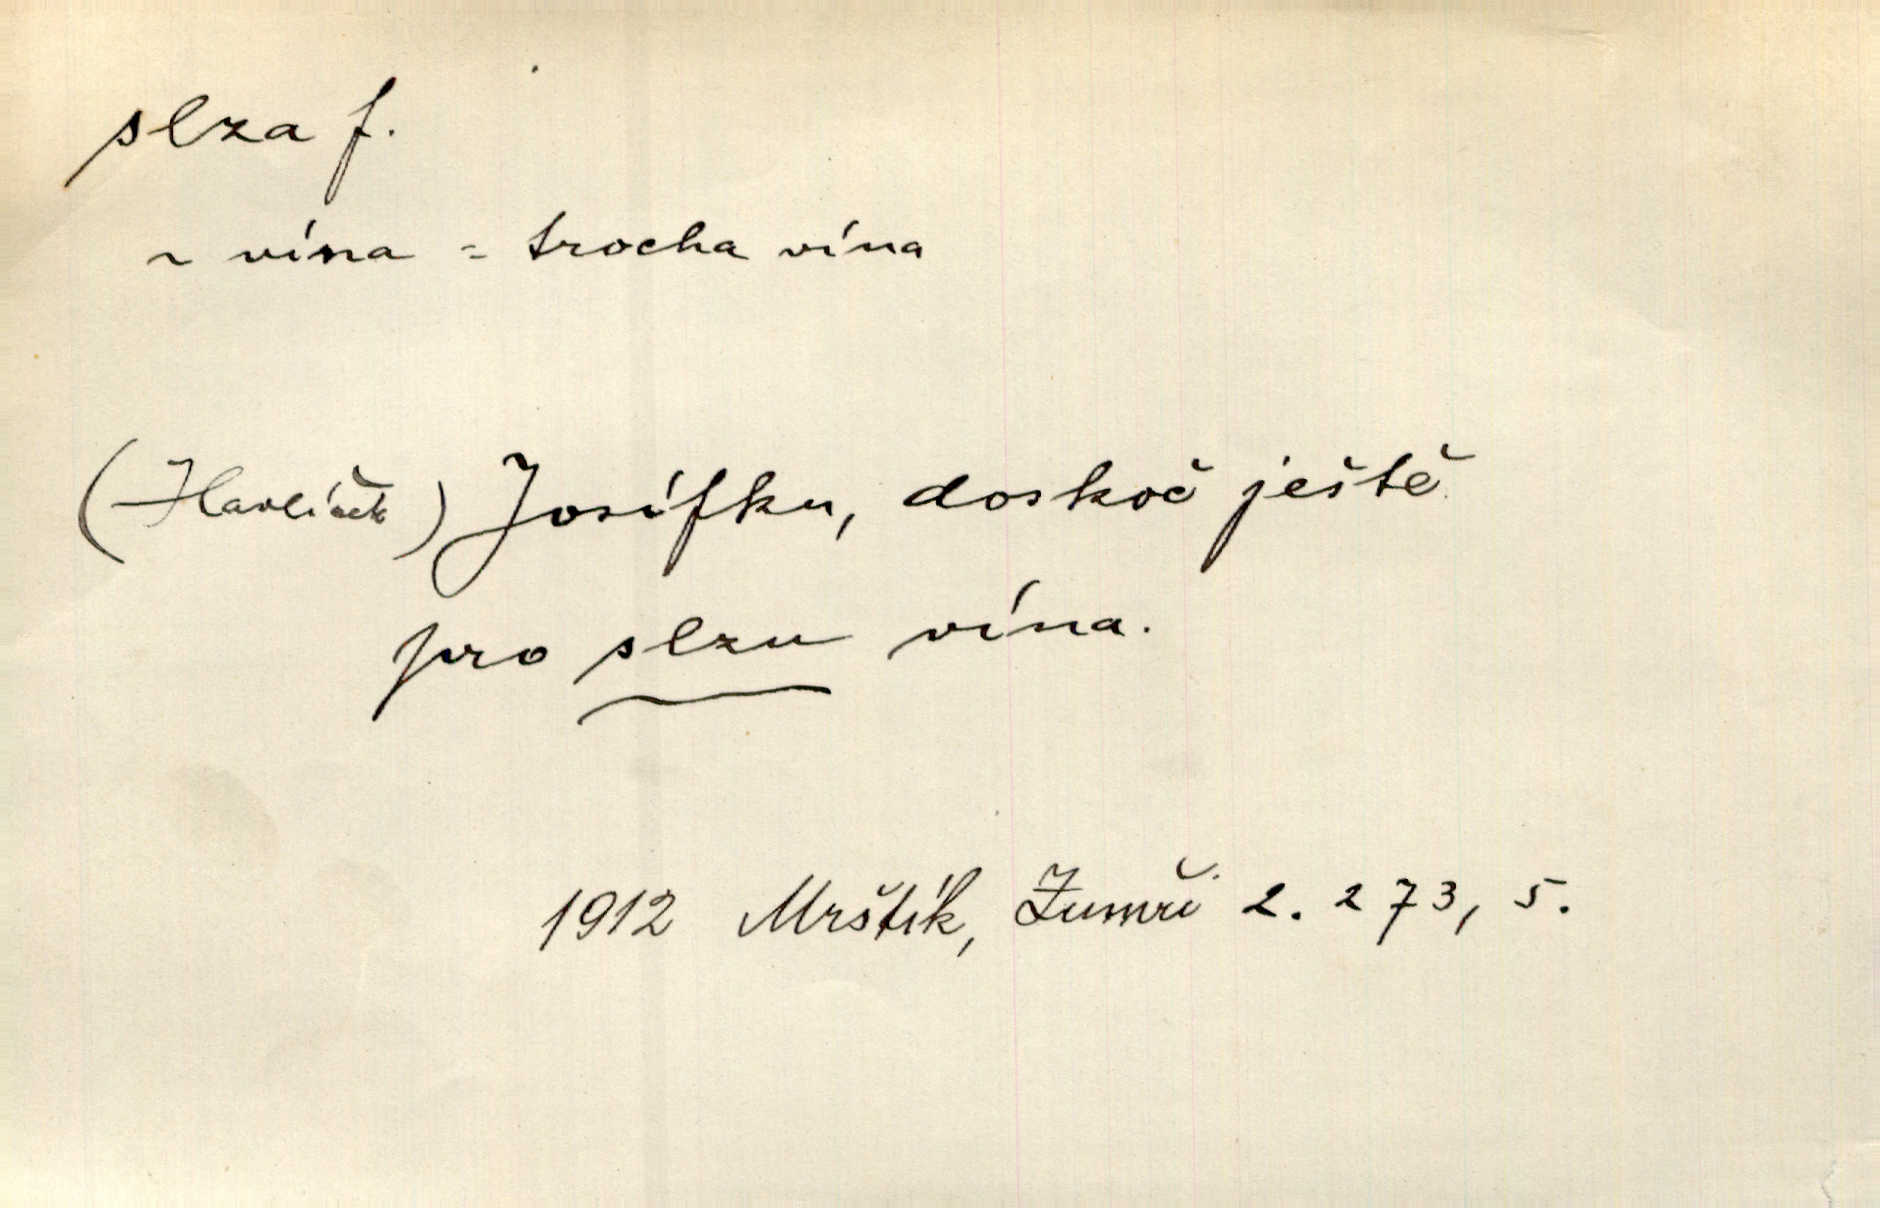 slza f.
~ vína = trocha vína
(Havlíček) Josífku, doskoč ještě
pro slzu vína.
1912 Mrštík, Zumři 2. 273, 5.